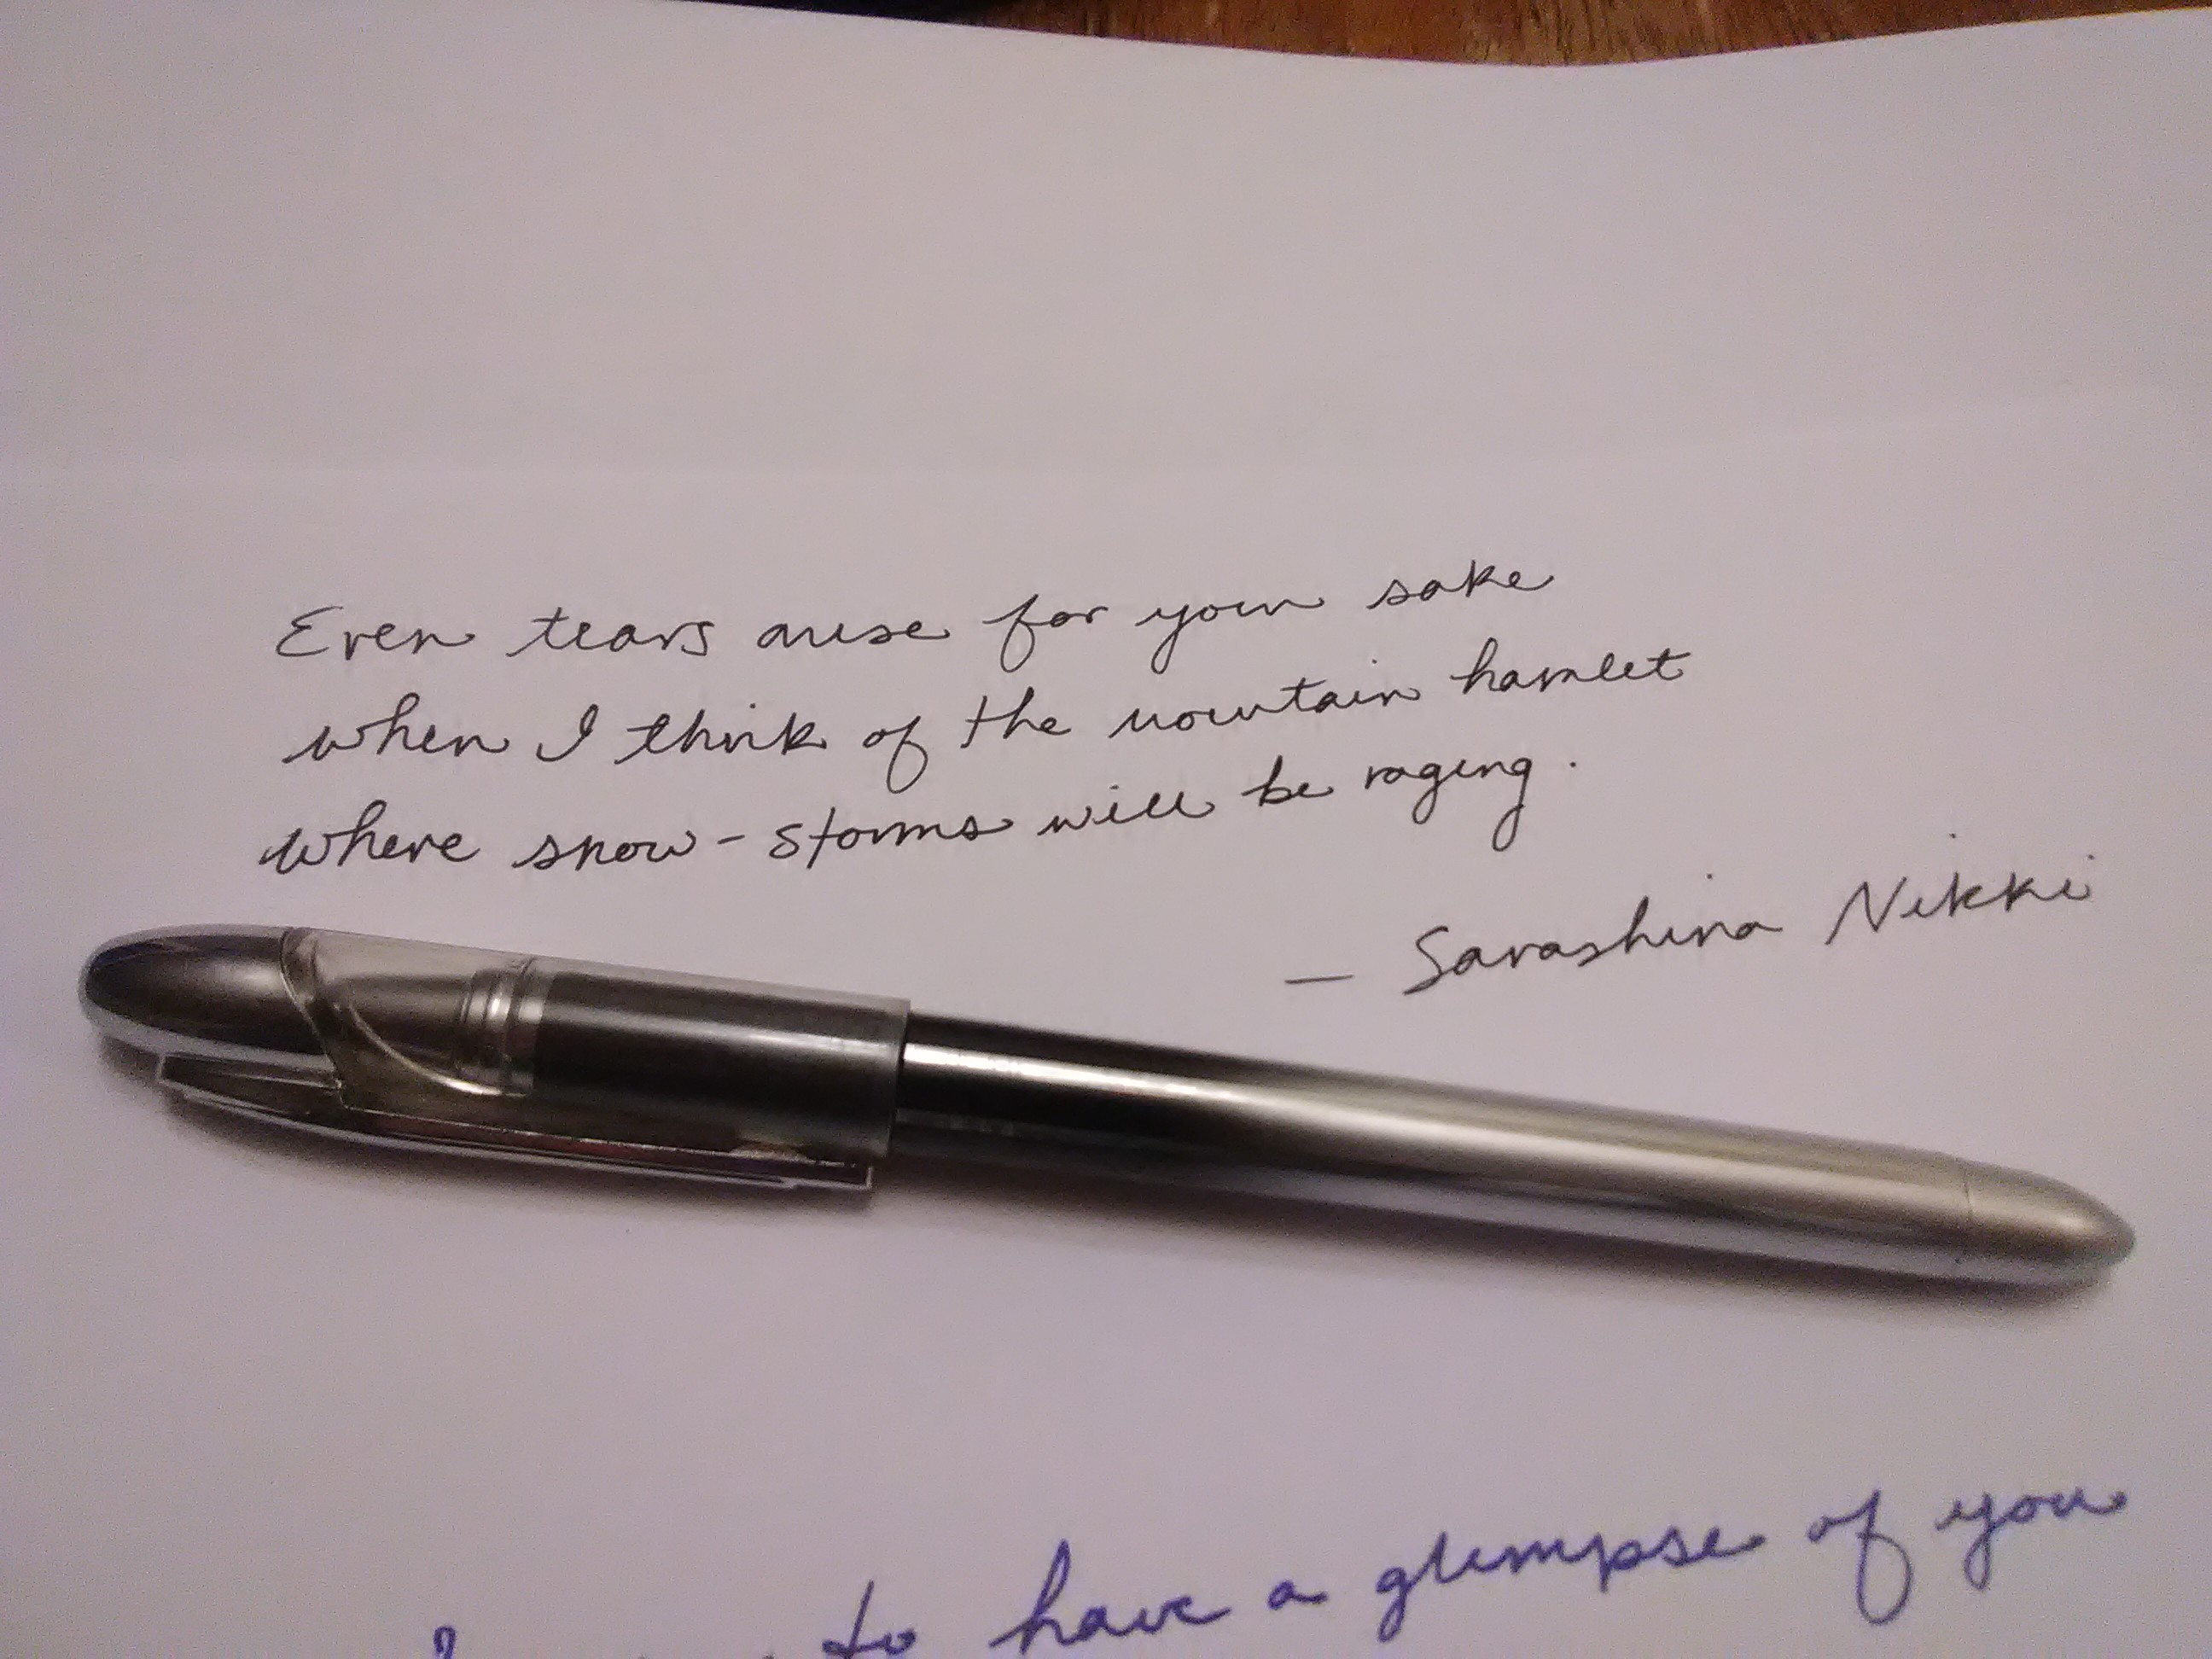 Even tears arise for your sake
when I think of the mountain hamlet
where snow-storms will be raging.
— Sarashina Nikki
to have a glimpse of you